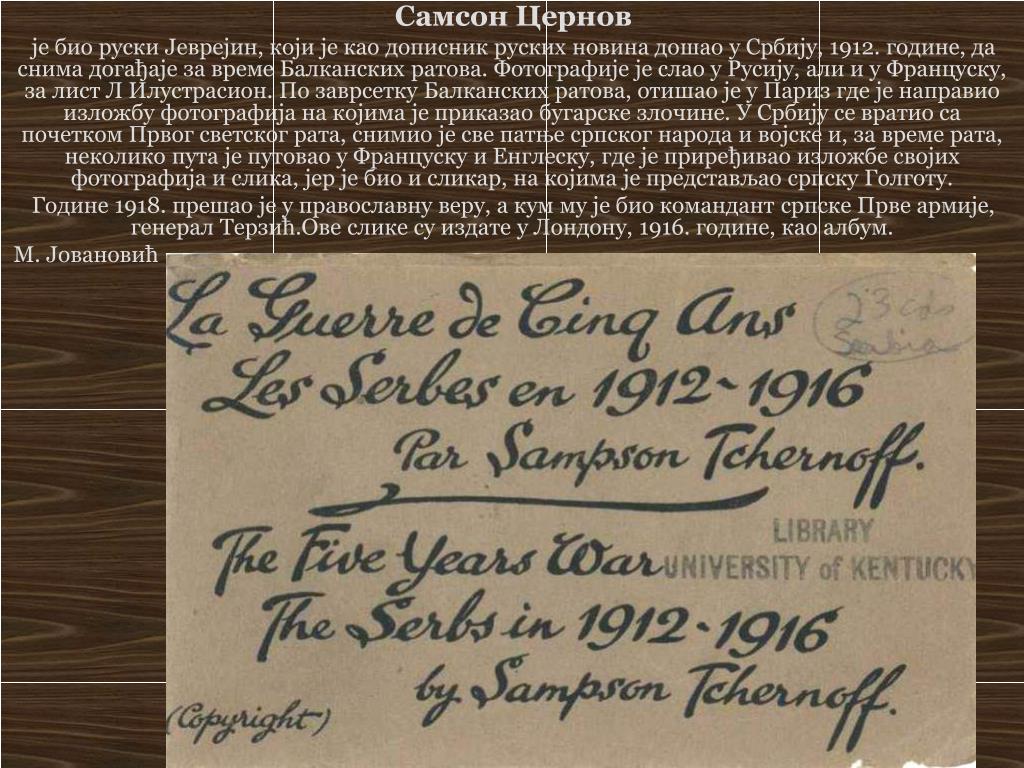 Самсон Цернов
је био руски Јеврејин, који је као дописник руских новина дошао у Србију, 1912. године, да
снима догађаје за време Балканских ратова. Фотографије је слао у Русију, али и у Француску,
за лист Л Илустрасион. По заврсетку Балканских ратова, отишао је у Париз где је направио
изложбу фотографија на којима је приказао бугарске злочине. У Србију се вратио са
почетком Првог светског рата, снимио је све патње српског народа и војске и, за време рата,
неколико пута је путовао у Француску и Енглеску, где је приређивао изложбе својих
фотографија и слика, јер је био и сликар, на којима је представљао српску Голготу.
Године 1918. прешао је у православну веру, а кум му је био командант српске Прве армије,
генерал Терзић.Ове слике су издате у Лондону, 1916. године, као албум.
М. Јовановић
La Guerre de Cinq Ans
Les Serbes en 1912-1916
Par Sampson Tchernoff.
The Five Years War
The Serbs in 1912-1916
by Sampson Tchernoff.
(Copyright)
23 cds
Serbia
LIBRARY
UNIVERSITY of KENTUCKY